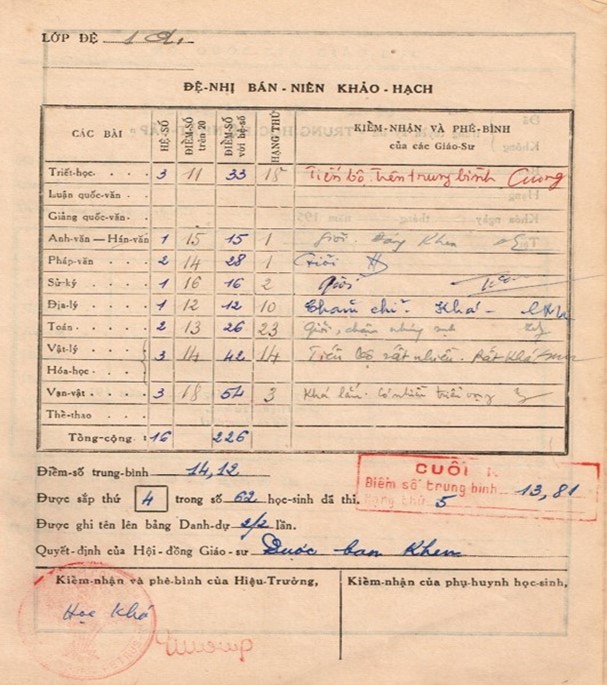 LỚP ĐỆ 1 A.
ĐỆ-NHỊ BÁN-NIÊN KHẢO-HẠCH
CÁC BÀI HỆ-SỐ ĐIỂM-SỐ trên 20 ĐIỂM-SỐ với hệ-số HẠNG THỨ KIỂM-NHẬN VÀ PHÊ-BÌNH của các Giáo-Sư
Triết-học 3 11 33 18 Tiến bộ. Trên trung bình Cương
Luận quốc-văn
Giảng quốc-văn
Anh-văn — Hán-văn 1 15 15 1 Giỏi. Đáng Khen
Pháp-văn 2 14 28 1 Giỏi
Sử-ký 1 16 16 2 Giỏi
Địa-lý 1 12 12 10 Chăm chỉ. Khá -
Toán 2 13 26 23 Giỏi,
Vật-lý 3 14 42 14 Tiến bộ rất nhiều. Rất Khá
Hóa-học
Vạn-vật 3 18 54 3 Khá lắm. Có nhiều triển vọng
Thể-thao
Tổng-cộng : 16 226
Điểm-số trung-bình 14,12
Được sắp thứ 4 trong số 62 học-sinh đã thi.
Được ghi tên lên bảng Danh-dự 2/2 lần.
Quyết-định của Hội-đồng Giáo-sư Được ban Khen
CUỐI
Điểm số trung bình 13,81
Hạng thứ 5
Kiểm-nhận và phê-bình của Hiệu-Trưởng,
Học Khá
Kiểm-nhận của phụ-huynh học-sinh,